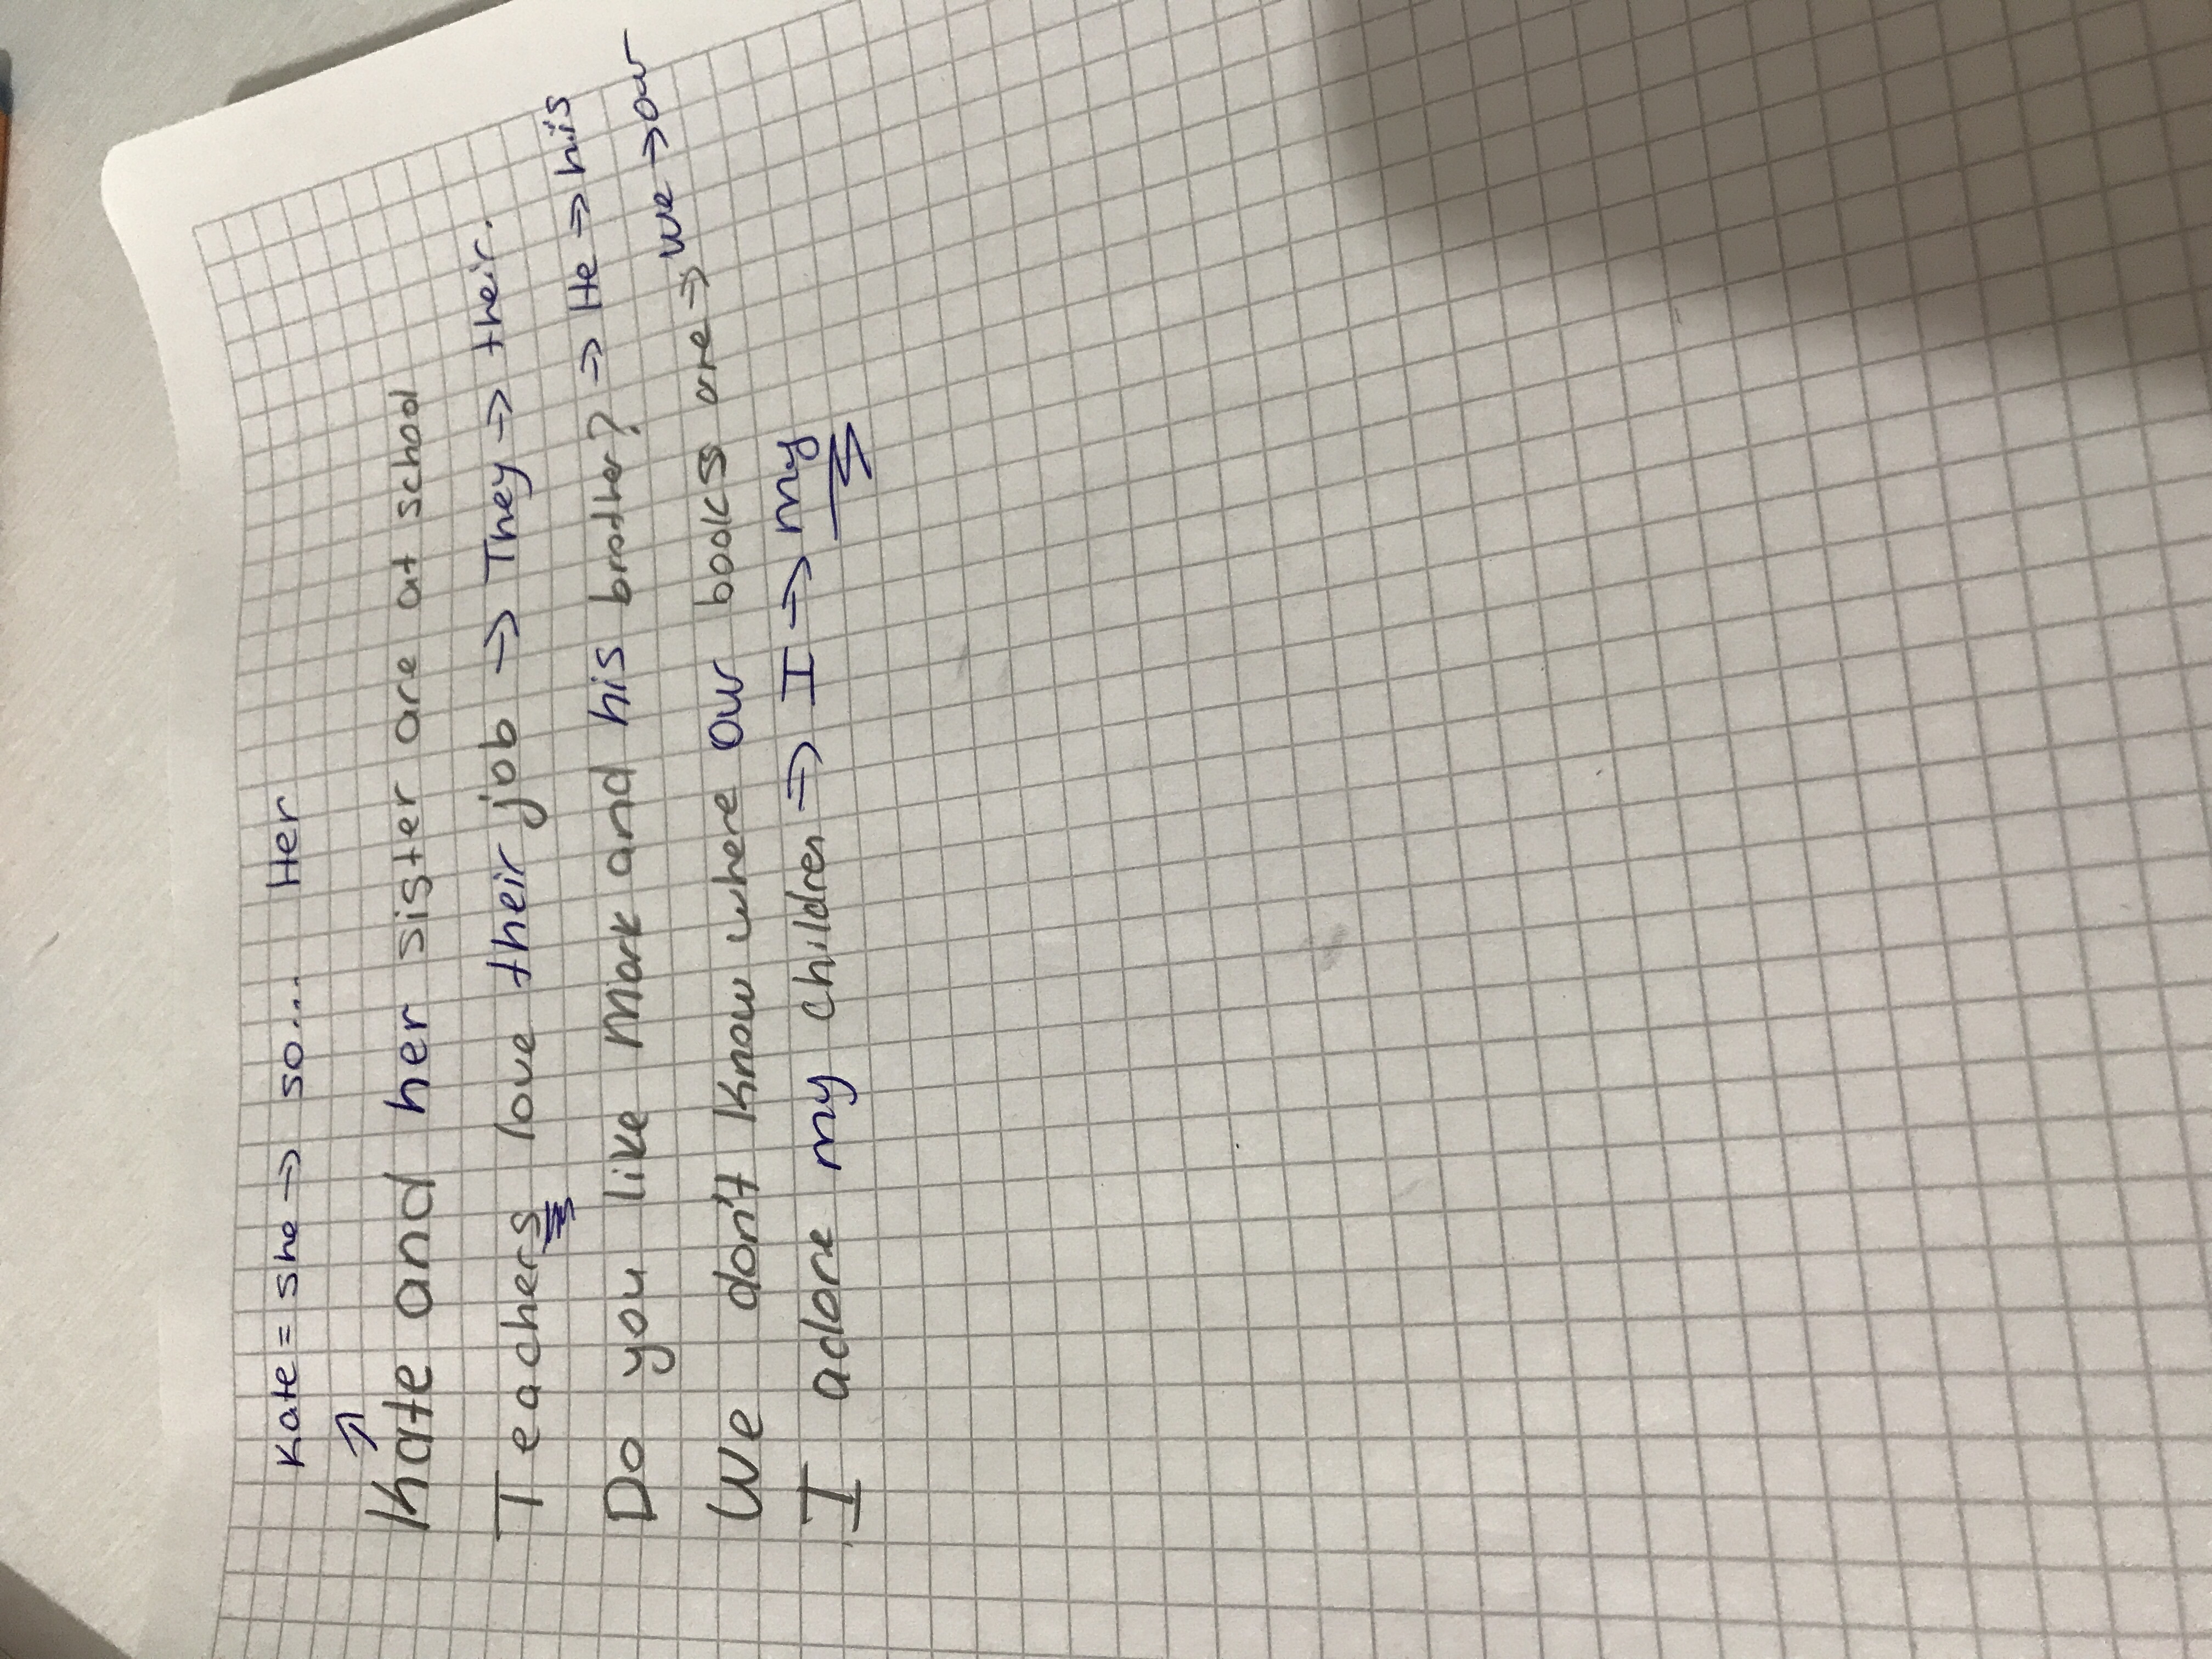 Kate = she => so... Her
Kate and her sister are at school
Teachers love their job => They => their.
Do you like Mark and his brother? => He => his
We don't know where our books are => we => our
I adore my children => I => my